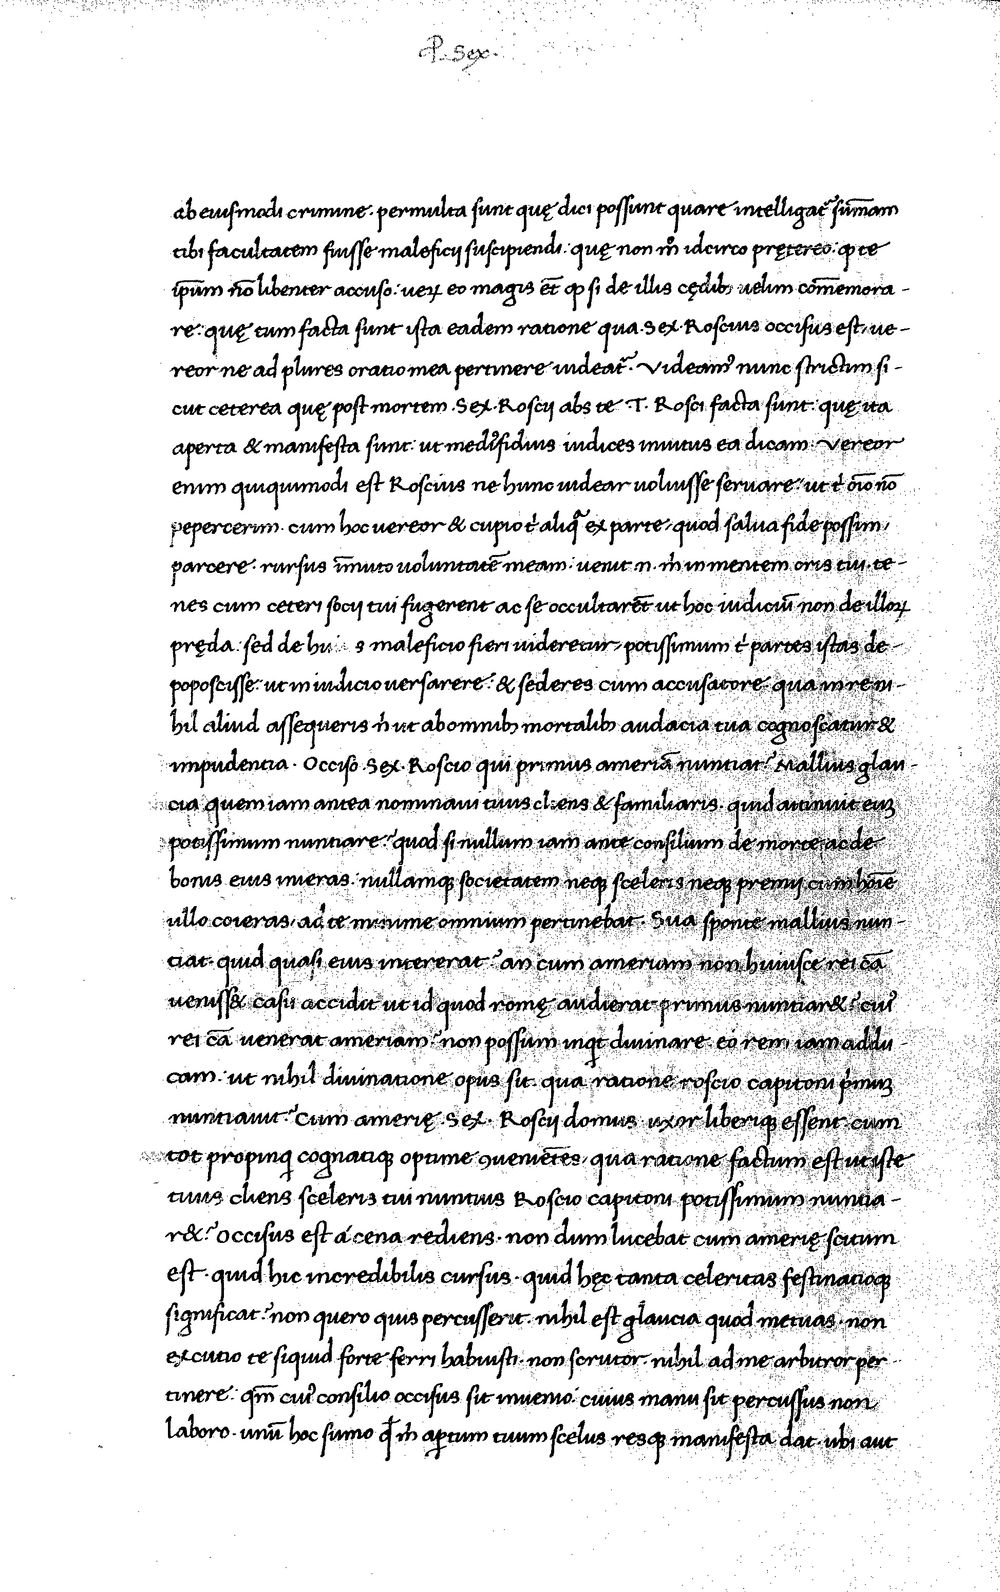 P. Sex.
ab eiusmodi crimine. permulta sunt quę dici possunt quare intelligat᷑ sum̄am
tibi facultatem fuisse maleficij suscipiendi: quę non m̊ idcirco prętereo: ꝙ te
ip̄um nō libenter accuso: ueꝝ eo magis et̄ ꝙ si de illis cędib; uelim com̄emora-
re: quę tum facta sunt ista eadem ratione qua Sex. Roscius occisus est, ue-
reor ne ad plures oratio mea pertinere uideat᷑. Videam᷒ nunc strictim si-
cut ceterea quę post mortem Sex. Roscij abs te .T. Rosci facta sunt: quę ita
aperta & manifesta sunt: ut medi᷒fidius iudices inuitus ea dicam. Vereor
enim quiquimodi est Roscius ne hunc uidear uoluisse seruare: ut t᷑ oīo nō
pepercerim. cum hoc uereor & cupio t᷑ aliq̄ ex parte, quod salua fide possim,
parcere. rursus īmuto voluntatē meam: uenit n. m̊ in mentem oris tui. te-
nes cum ceteri socij tui fugerent ac se occultarēt ut hoc iudiciū non de illoꝝ
pręda: sed de hu s maleficio fieri uideretur, potissimum t᷑ partes istas de-
poposcisse: ut in iudicio uersarere: & sederes cum accusatore: qua in re ni-
hil aliud assequeris n̊ ut ab omnib; mortalib; audacia tua cognoscatur &
impudentia. Occiso Sex. Roscio qui primus ameriā nuntiat? Mallius glau-
cia quem iam antea nominaui tuus cliens & familiaris. quid attinuit euꝫ
potissimum nuntiare? quod si nullum iam ante consilium de morte ac de
bonis eius inieras: nullamqꝫ societatem neqꝫ sceleris neqꝫ premij cum hoīe
ullo coieras, ad te minime omnium pertinebat. Sua sponte mallius nun-
tiat. quid quasi eius intererat? an cum ameriam non huiusce rei cā
ueniss& casu accidit ut id quod romę audierat primus nuntiar&? cui᷒
rei cā uenerat ameriam? non possum inqt diuinare. eo rem iam addu-
cam: ut nihil diuinatione opus sit. qua ratione roscio capitoni p̊muꝫ
nuntiauit? Cum amerię Sex. Roscij domus uxor liberiqꝫ essent. cum
tot propinqi cognatiqꝫ optime ꝯuenietes, qua ratione factum est ut iste
tuus cliens sceleris tui nuntius Roscio capitoni potissimum nuntia-
r&? Occisus est á cena rediens. non dum lucebat cum amerię scitum
est. quid hic incredibilis cursus. quid hęc tanta celeritas festinatioqꝫ
significat? non quero quis percusserit. nihil est glaucia quod metuas. non
excutio te siquid forte ferri habuisti. non scrutor. nihil ad me arbitror per-
tinere: qm̄ cui᷒ consilio occisus sit inuenio: cuius manu sit percussus non
laboro. unū hoc sumo qđ m̊ aꝑtum tuum scelus resqꝫ manifesta dat. ubi aut